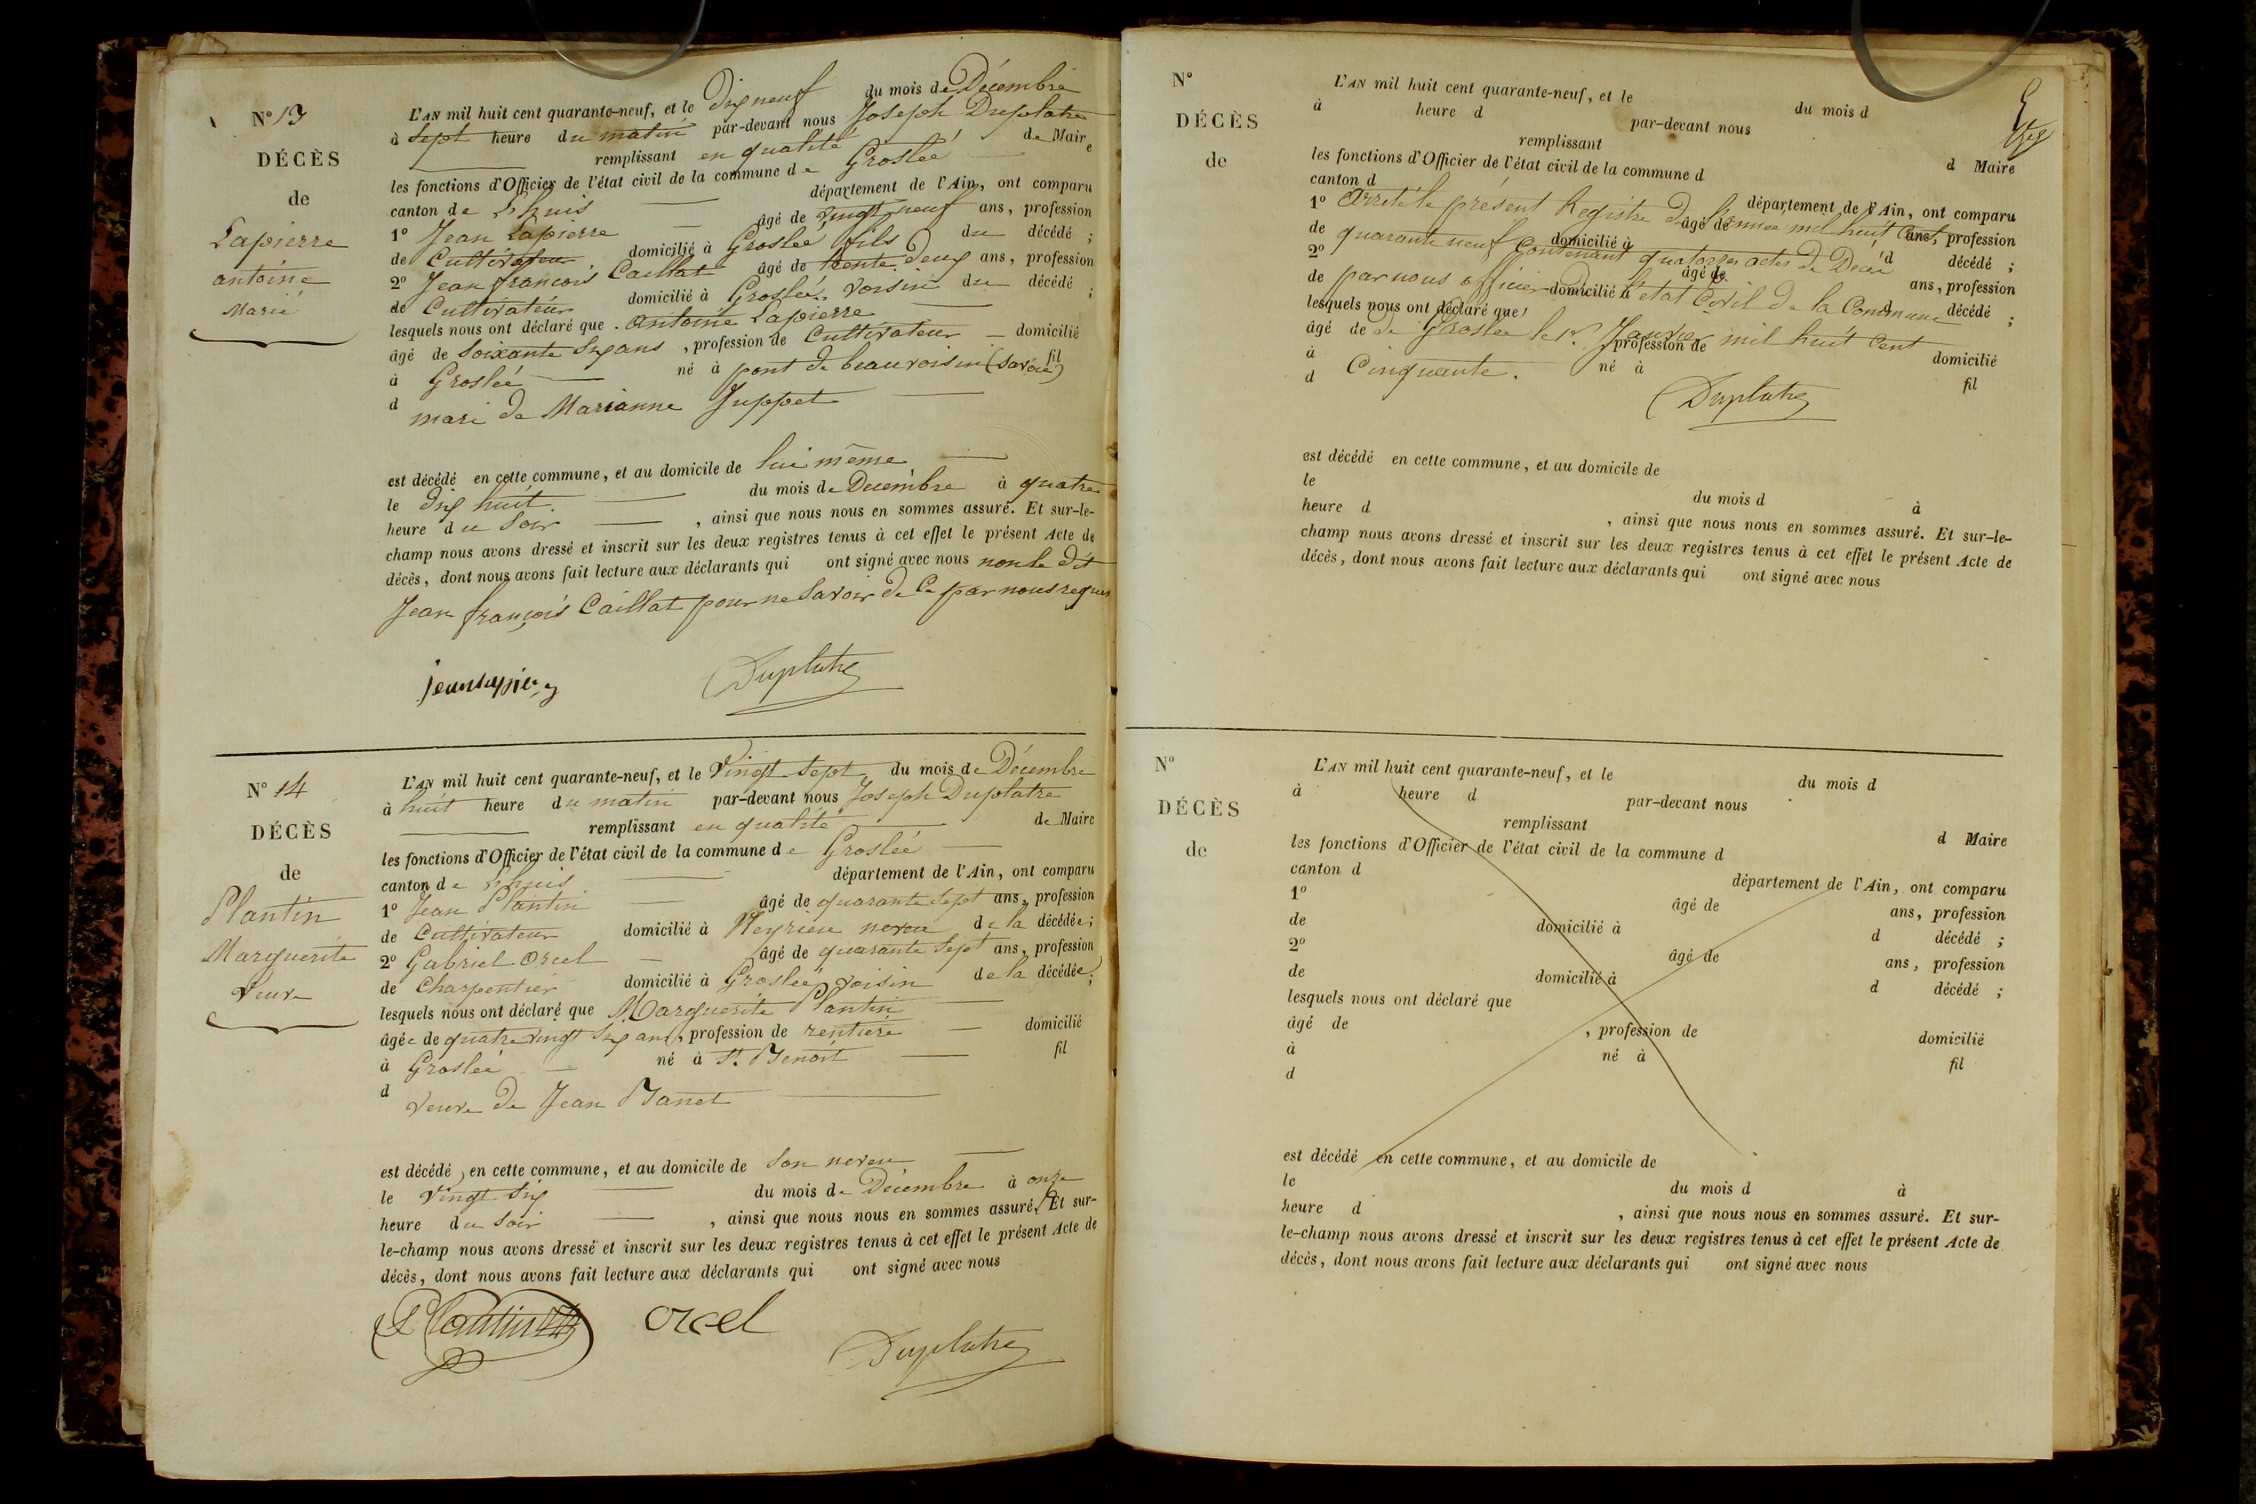 N° 13
DÉCÈS
de
Lapierre
antoine
Marié
L'AN mil huit cent quarante-neuf, et le Dix neuf du mois de Décembre
à Sept heure du matin par-devant nous Joseph Duplatre
remplissant en qualité de Maire
les fonctions d'Officier de l'état civil de la commune de Groslée
canton de Lhuis département de l'Ain, ont comparu
1° Jean Lapierre âgé de vingt neuf ans, profession
de Cultivateur domicilié à Groslée, fils du décédé ;
2° Jean françois Caillat âgé de trente deux ans, profession
de Cultivateur domicilié à Groslée voisin du décédé ;
lesquels nous ont déclaré que antoine Lapierre
âgé de Soixante Six ans, profession de Cultivateur domicilié
à Groslée né à pont de beauvoisin (Savoie) fil
d mari de Marianne Juppet
est décédé en cette commune, et au domicile de lui même
le Dix huit du mois de Decembre à quatre
heure du Soir, ainsi que nous nous en sommes assuré. Et sur-le-
champ nous avons dressé et inscrit sur les deux registres tenus à cet effet le présent Acte de
décès, dont nous avons fait lecture aux déclarants qui ont signé avec nous non le dit
Jean françois Caillat pour ne Savoir de Ce par nous requis
jean lapierre Duplatre
N° 14
DÉCÈS
de
Plantin
Marguerite
Veuve
L'AN mil huit cent quarante-neuf, et le Vingt Sept du mois de Décembre
à huit heure du matin par-devant nous Joseph Duplatre
remplissant en qualité de Maire
les fonctions d'Officier de l'état civil de la commune de Groslée
canton de Lhuis département de l'Ain, ont comparu
1° Jean Plantin âgé de quarante Sept ans, profession
de Cultivateur domicilié à Veyrieu neveu de la décédée ;
2° Gabriel Orcel âgé de quarante Sept ans, profession
de Charpentier domicilié à Groslée voisin de la décédée ;
lesquels nous ont déclaré que Marguerite Plantin
âgée de quatre vingt Six ans, profession de rentiere domicilié
à Groslée né à St. Benoit fil
d veuve de Jean Banet
est décédé en cette commune, et au domicile de Son neveu
le Vingt Six du mois de Décembre à onze
heure du Soir, ainsi que nous nous en sommes assuré. Et sur-
le-champ nous avons dressé et inscrit sur les deux registres tenus à cet effet le présent Acte de
décès, dont nous avons fait lecture aux déclarants qui ont signé avec nous
Plantin orcel Duplatre
N°
DÉCÈS
de
L'AN mil huit cent quarante-neuf, et le du mois d
à heure d par-devant nous
remplissant d Maire
les fonctions d'Officier de l'état civil de la commune d
canton d département de l'Ain, ont comparu
Arrêté le présent Registre De l'année mil huit Cent
1° âgé de ans, profession
quarante neuf Contenant quatorze actes de Décès
de domicilié à d décédé ;
2° âgé de ans, profession
par nous officier de l'etat Civil de la Commune
de domicilié à d décédé ;
lesquels nous ont déclaré que
de Groslée le 1er Janvier mil huit Cent
âgé de profession de domicilié
Cinquante.
à né à fil
d
Duplatre
est décédé en cette commune, et au domicile de
le du mois d à
heure d , ainsi que nous nous en sommes assuré. Et sur-le-
champ nous avons dressé et inscrit sur les deux registres tenus à cet effet le présent Acte de
décès, dont nous avons fait lecture aux déclarants qui ont signé avec nous
N°
DÉCÈS
de
L'AN mil huit cent quarante-neuf, et le du mois d
à heure d par-devant nous
remplissant d Maire
les fonctions d'Officier de l'état civil de la commune d
canton d département de l'Ain, ont comparu
1° âgé de ans, profession
de domicilié à d décédé ;
2° âgé de ans, profession
de domicilié à d décédé ;
lesquels nous ont déclaré que
âgé de , profession de domicilié
à né à fil
d
est décédé en cette commune, et au domicile de
le du mois d à
heure d , ainsi que nous nous en sommes assuré. Et sur-
le-champ nous avons dressé et inscrit sur les deux registres tenus à cet effet le présent Acte de
décès, dont nous avons fait lecture aux déclarants qui ont signé avec nous